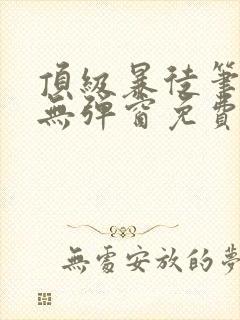 頂級暴徒筆
無彈窗免費
無處安放的夢